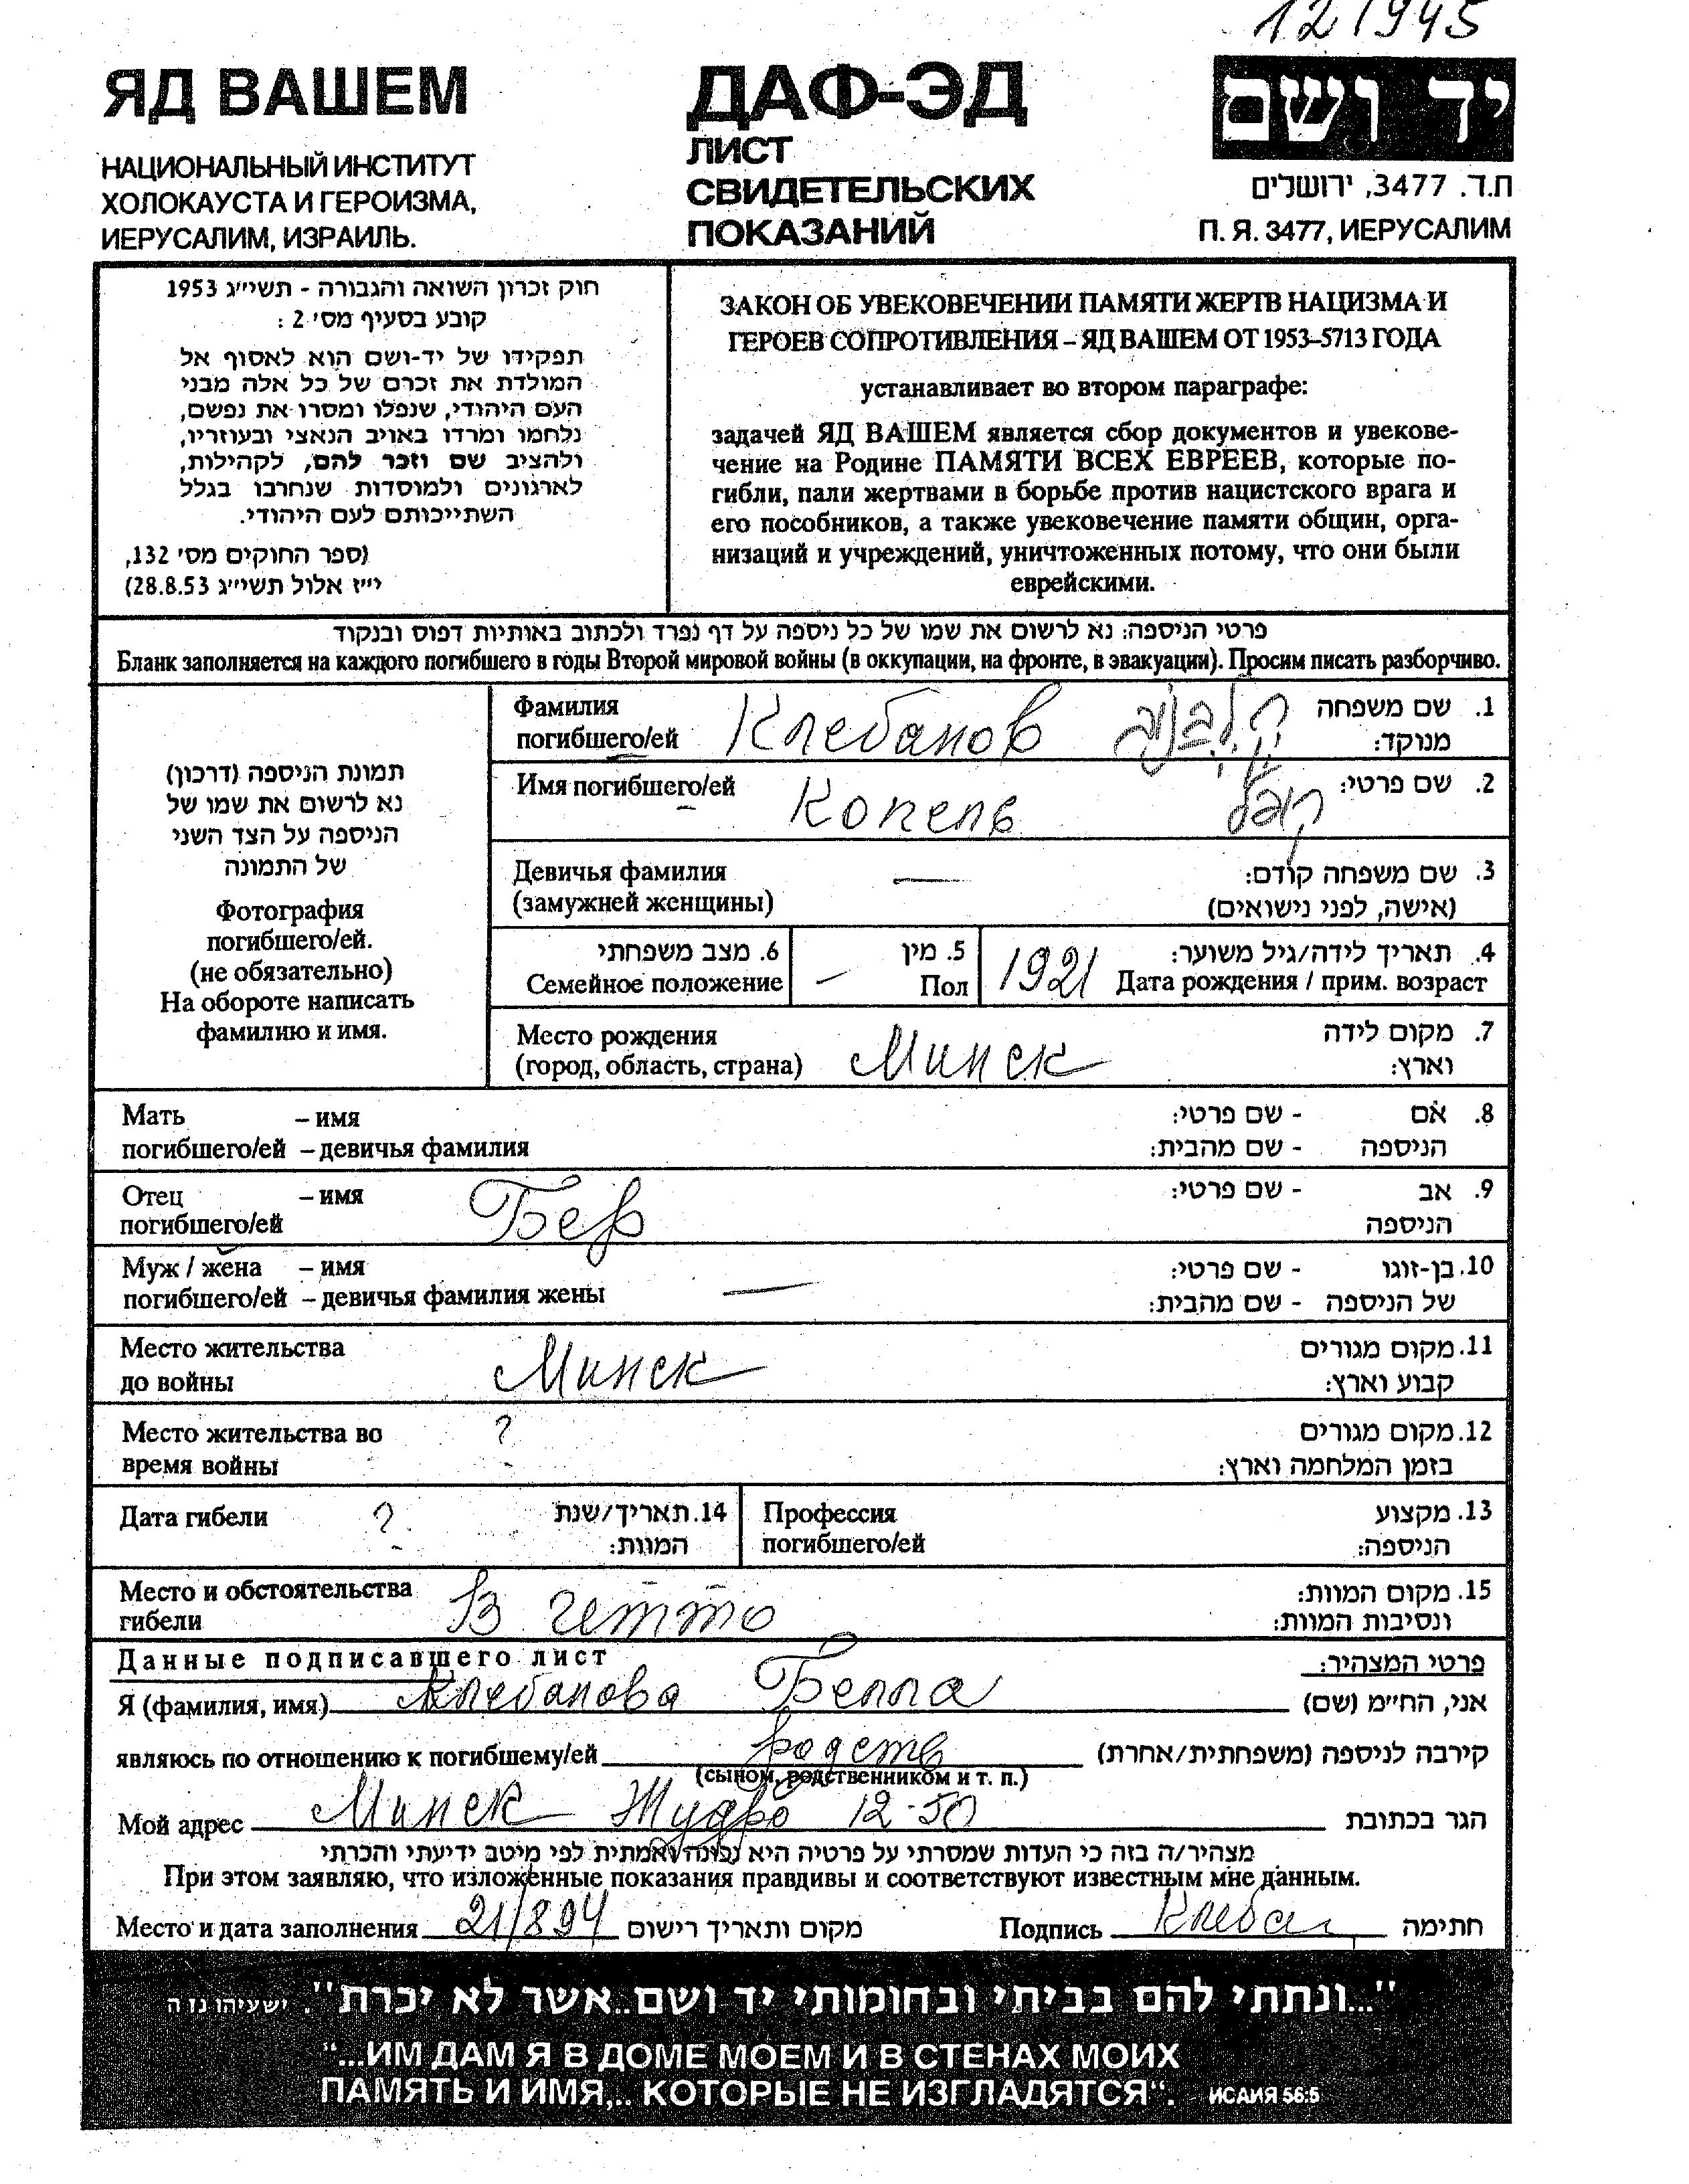 121945
ЯД ВАШЕМ
НАЦИОНАЛЬНЫЙ ИНСТИТУТ
ХОЛОКАУСТА И ГЕРОИЗМА,
ИЕРУСАЛИМ, ИЗРАИЛЬ.
ДАФ-ЭД
ЛИСТ
СВИДЕТЕЛЬСКИХ
ПОКАЗАНИЙ
יד ושם
ת.ד. 3477, ירושלים
П. Я. 3477, ИЕРУСАЛИМ
חוק זכרון השואה והגבורה - תשי״ג 1953
קובע בסעיף מס׳ 2 :
תפקידו של יד-ושם הוא לאסוף אל
המולדת את זכרם של כל אלה מבני
העם היהודי, שנפלו ומסרו את נפשם,
נלחמו ומרדו באויב הנאצי ובעוזריו,
ולהציב שם וזכר להם, לקהילות,
לארגונים ולמוסדות שנחרבו בגלל
השתייכותם לעם היהודי.
(ספר החוקים מס׳ 132,
י״ז אלול תשי״ג 28.8.53)
ЗАКОН ОБ УВЕКОВЕЧЕНИИ ПАМЯТИ ЖЕРТВ НАЦИЗМА И
ГЕРОЕВ СОПРОТИВЛЕНИЯ – ЯД ВАШЕМ ОТ 1953–5713 ГОДА
устанавливает во втором параграфе:
задачей ЯД ВАШЕМ является сбор документов и увекове-
чение на Родине ПАМЯТИ ВСЕХ ЕВРЕЕВ, которые по-
гибли, пали жертвами в борьбе против нацистского врага и
его пособников, а также увековечение памяти общин, орга-
низаций и учреждений, уничтоженных потому, что они были
еврейскими.
פרטי הניספה: נא לרשום את שמו של כל ניספה על דף נפרד ולכתוב באותיות דפוס ובנקוד
Бланк заполняется на каждого погибшего в годы Второй мировой войны (в оккупации, на фронте, в эвакуации). Просим писать разборчиво.
תמונת הניספה (דרכון)
נא לרשום את שמו של
הניספה על הצד השני
של התמונה
Фотография
погибшего/ей.
(не обязательно)
На обороте написать
фамилию и имя.
Фамилия
погибшего/ей Клебанов קלבנוב
1. שם משפחה
מנוקד:
Имя погибшего/ей Копель קופל 2. שם פרטי:
Девичья фамилия —
(замужней женщины)
3. שם משפחה קודם:
(אישה, לפני נישואים)
6. מצב משפחתי
Семейное положение
5. מין
— Пол
4. תאריך לידה/גיל משוער:
1921 Дата рождения / прим. возраст
Место рождения
(город, область, страна) Минск
7. מקום לידה
וארץ:
Мать – имя
погибшего/ей – девичья фамилия
8. אם - שם פרטי:
הניספה - שם מהבית:
Отец – имя Бер
погибшего/ей
9. אב - שם פרטי:
הניספה
Муж / жена – имя
погибшего/ей – девичья фамилия жены —
10. בן-זוגו - שם פרטי:
של הניספה - שם מהבית:
Место жительства
до войны Минск
11. מקום מגורים
קבוע וארץ:
Место жительства во ?
время войны
12. מקום מגורים
בזמן המלחמה וארץ:
Дата гибели ?
14. תאריך/שנת
המוות:
Профессия
погибшего/ей
13. מקצוע
הניספה:
Место и обстоятельства
гибели В гетто
15. מקום המוות:
ונסיבות המוות:
Данные подписавшего лист פרטי המצהיר:
Я (фамилия, имя) Клебанова Белла אני, החי״מ (שם)
являюсь по отношению к погибшему/ей родств קירבה לניספה (משפחתית/אחרת)
(сыном, родственником и т. п.)
Мой адрес Минск Жудро 12-50 הגר בכתובת
מצהיר/ה בזה כי העדות שמסרתי על פרטיה היא נכונה ואמתית לפי מיטב ידיעתי והכרתי
При этом заявляю, что изложенные показания правдивы и соответствуют известным мне данным.
Место и дата заполнения 21/894 מקום ותאריך רישום Подпись Клебан חתימה
"...ונתתי להם בביתי ובחומותי יד ושם..אשר לא יכרת". ישעיהו נו ה
"...ИМ ДАМ Я В ДОМЕ МОЕМ И В СТЕНАХ МОИХ
ПАМЯТЬ И ИМЯ,.. КОТОРЫЕ НЕ ИЗГЛАДЯТСЯ". ИСАИЯ 56:5